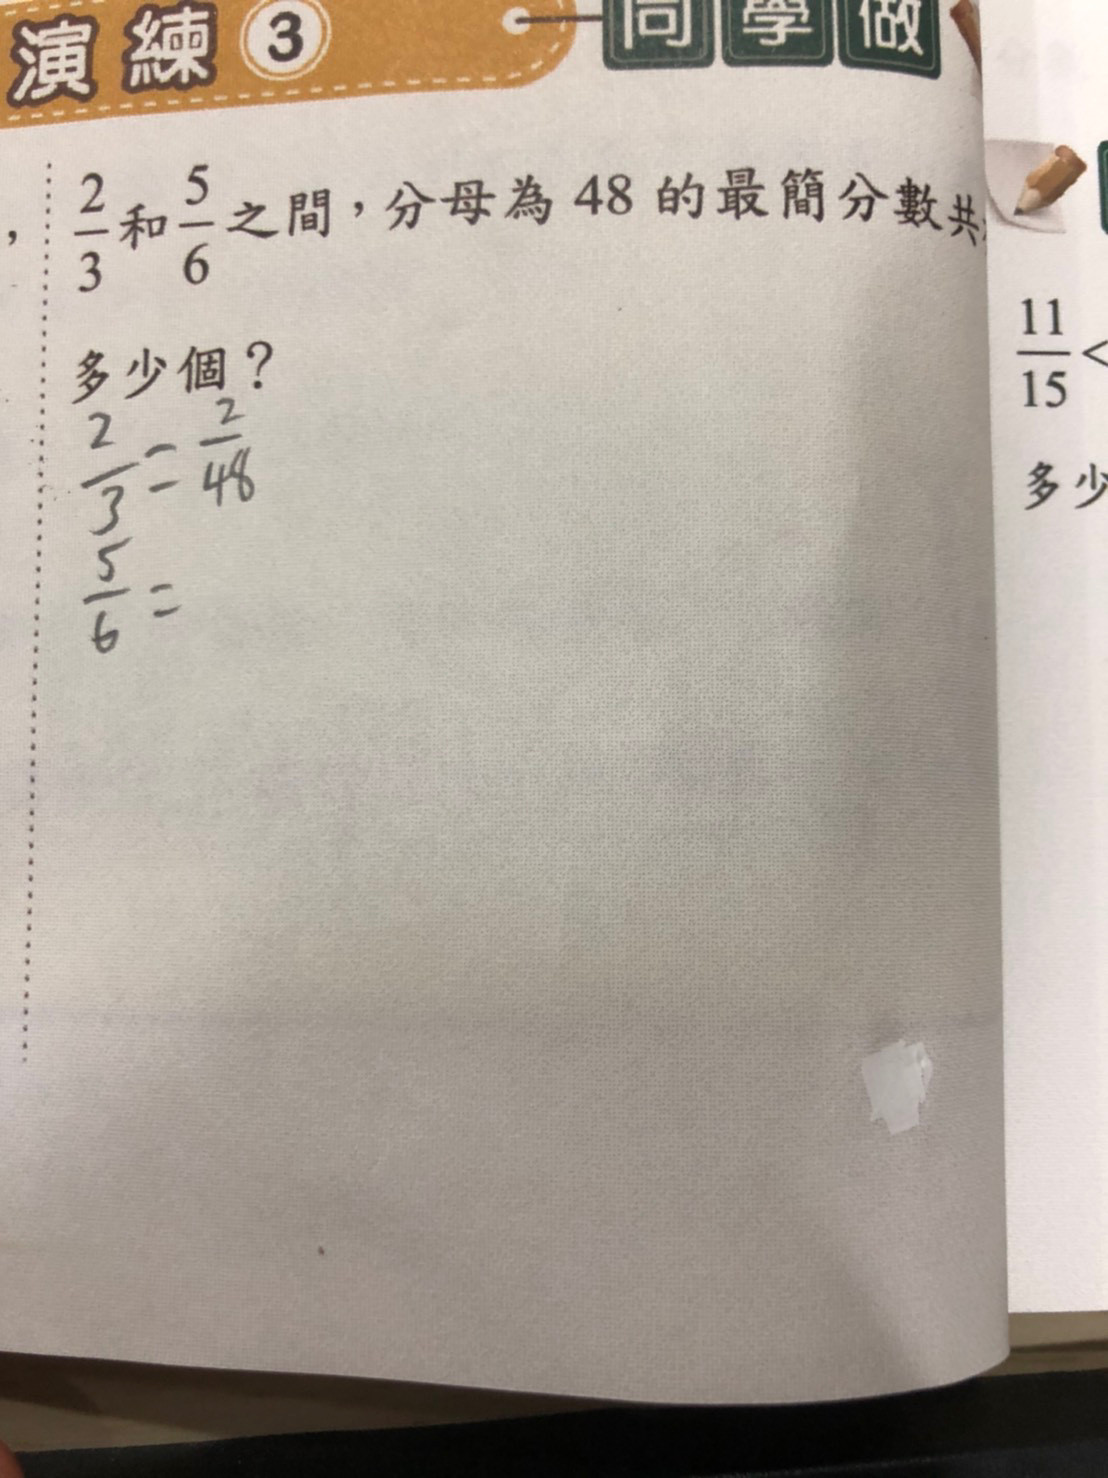 演練 3 同學做
, 2/3 和 5/6 之間，分母為 48 的最簡分數共
多少個？
2/3 = 2/48
5/6 =
11/15 <
多少